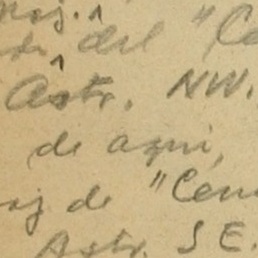 del "Ce
Astr. NW.
de aquí,
de "Cen
Astr. SE.